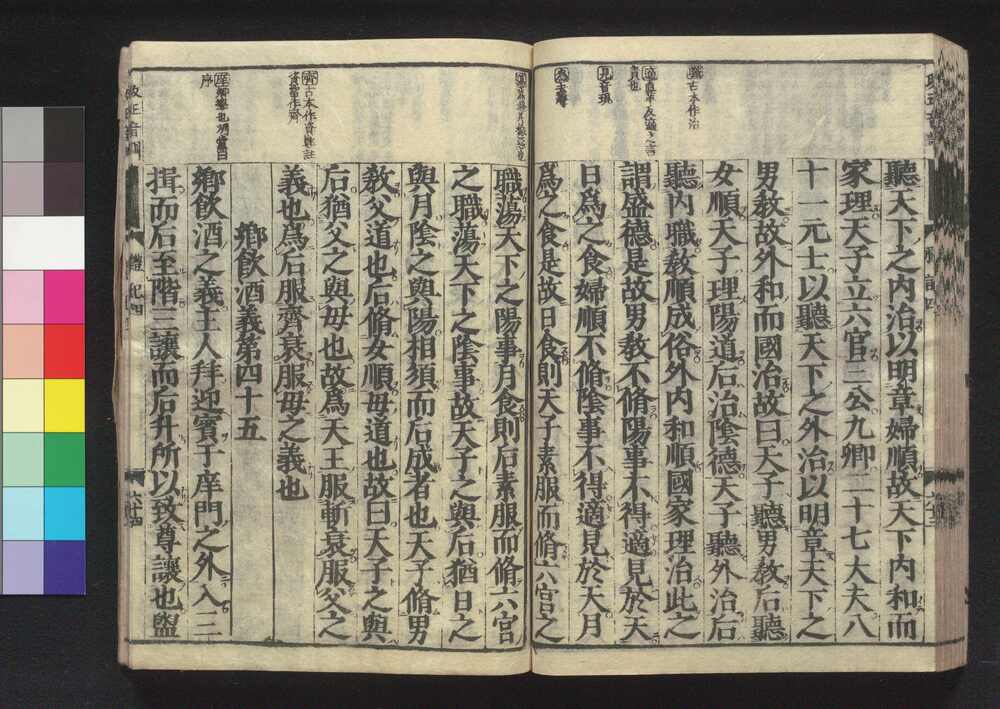 聽天下之内治以明章婦順故天下内和而
家理天子立六官三公九卿二十七大夫八
十一元士以聽天下之外治以明章天下之
男敎故外和而國治故曰天子聽男敎后聽
女順天子理陽道后治陰德天子聽外治后
聽内職敎順成俗外内和順國家理治此之
謂盛德是故男敎不脩陽事不得適見於天
日爲之食婦順不脩陰事不得適見於天月
爲之食是故日食則天子素服而脩六官之
職蕩天下之陽事月食則后素服而脩六宮
之職蕩天下之陰事故天子之與后猶日之
與月陰之與陽相須而后成者也天子脩男
敎父道也后脩女順母道也故曰天子之與
后猶父之與母也故爲天王服斬衰服父之
義也爲后服齊衰服母之義也
鄉飮酒義第四十五
鄉飮酒之義主人拜迎賓于庠門之外入三
揖而后至階三讓而后升所以致尊讓也盥
職古本作治
見音現
齊古本作資鄭註
資當作齊
序
禮記四
六十四